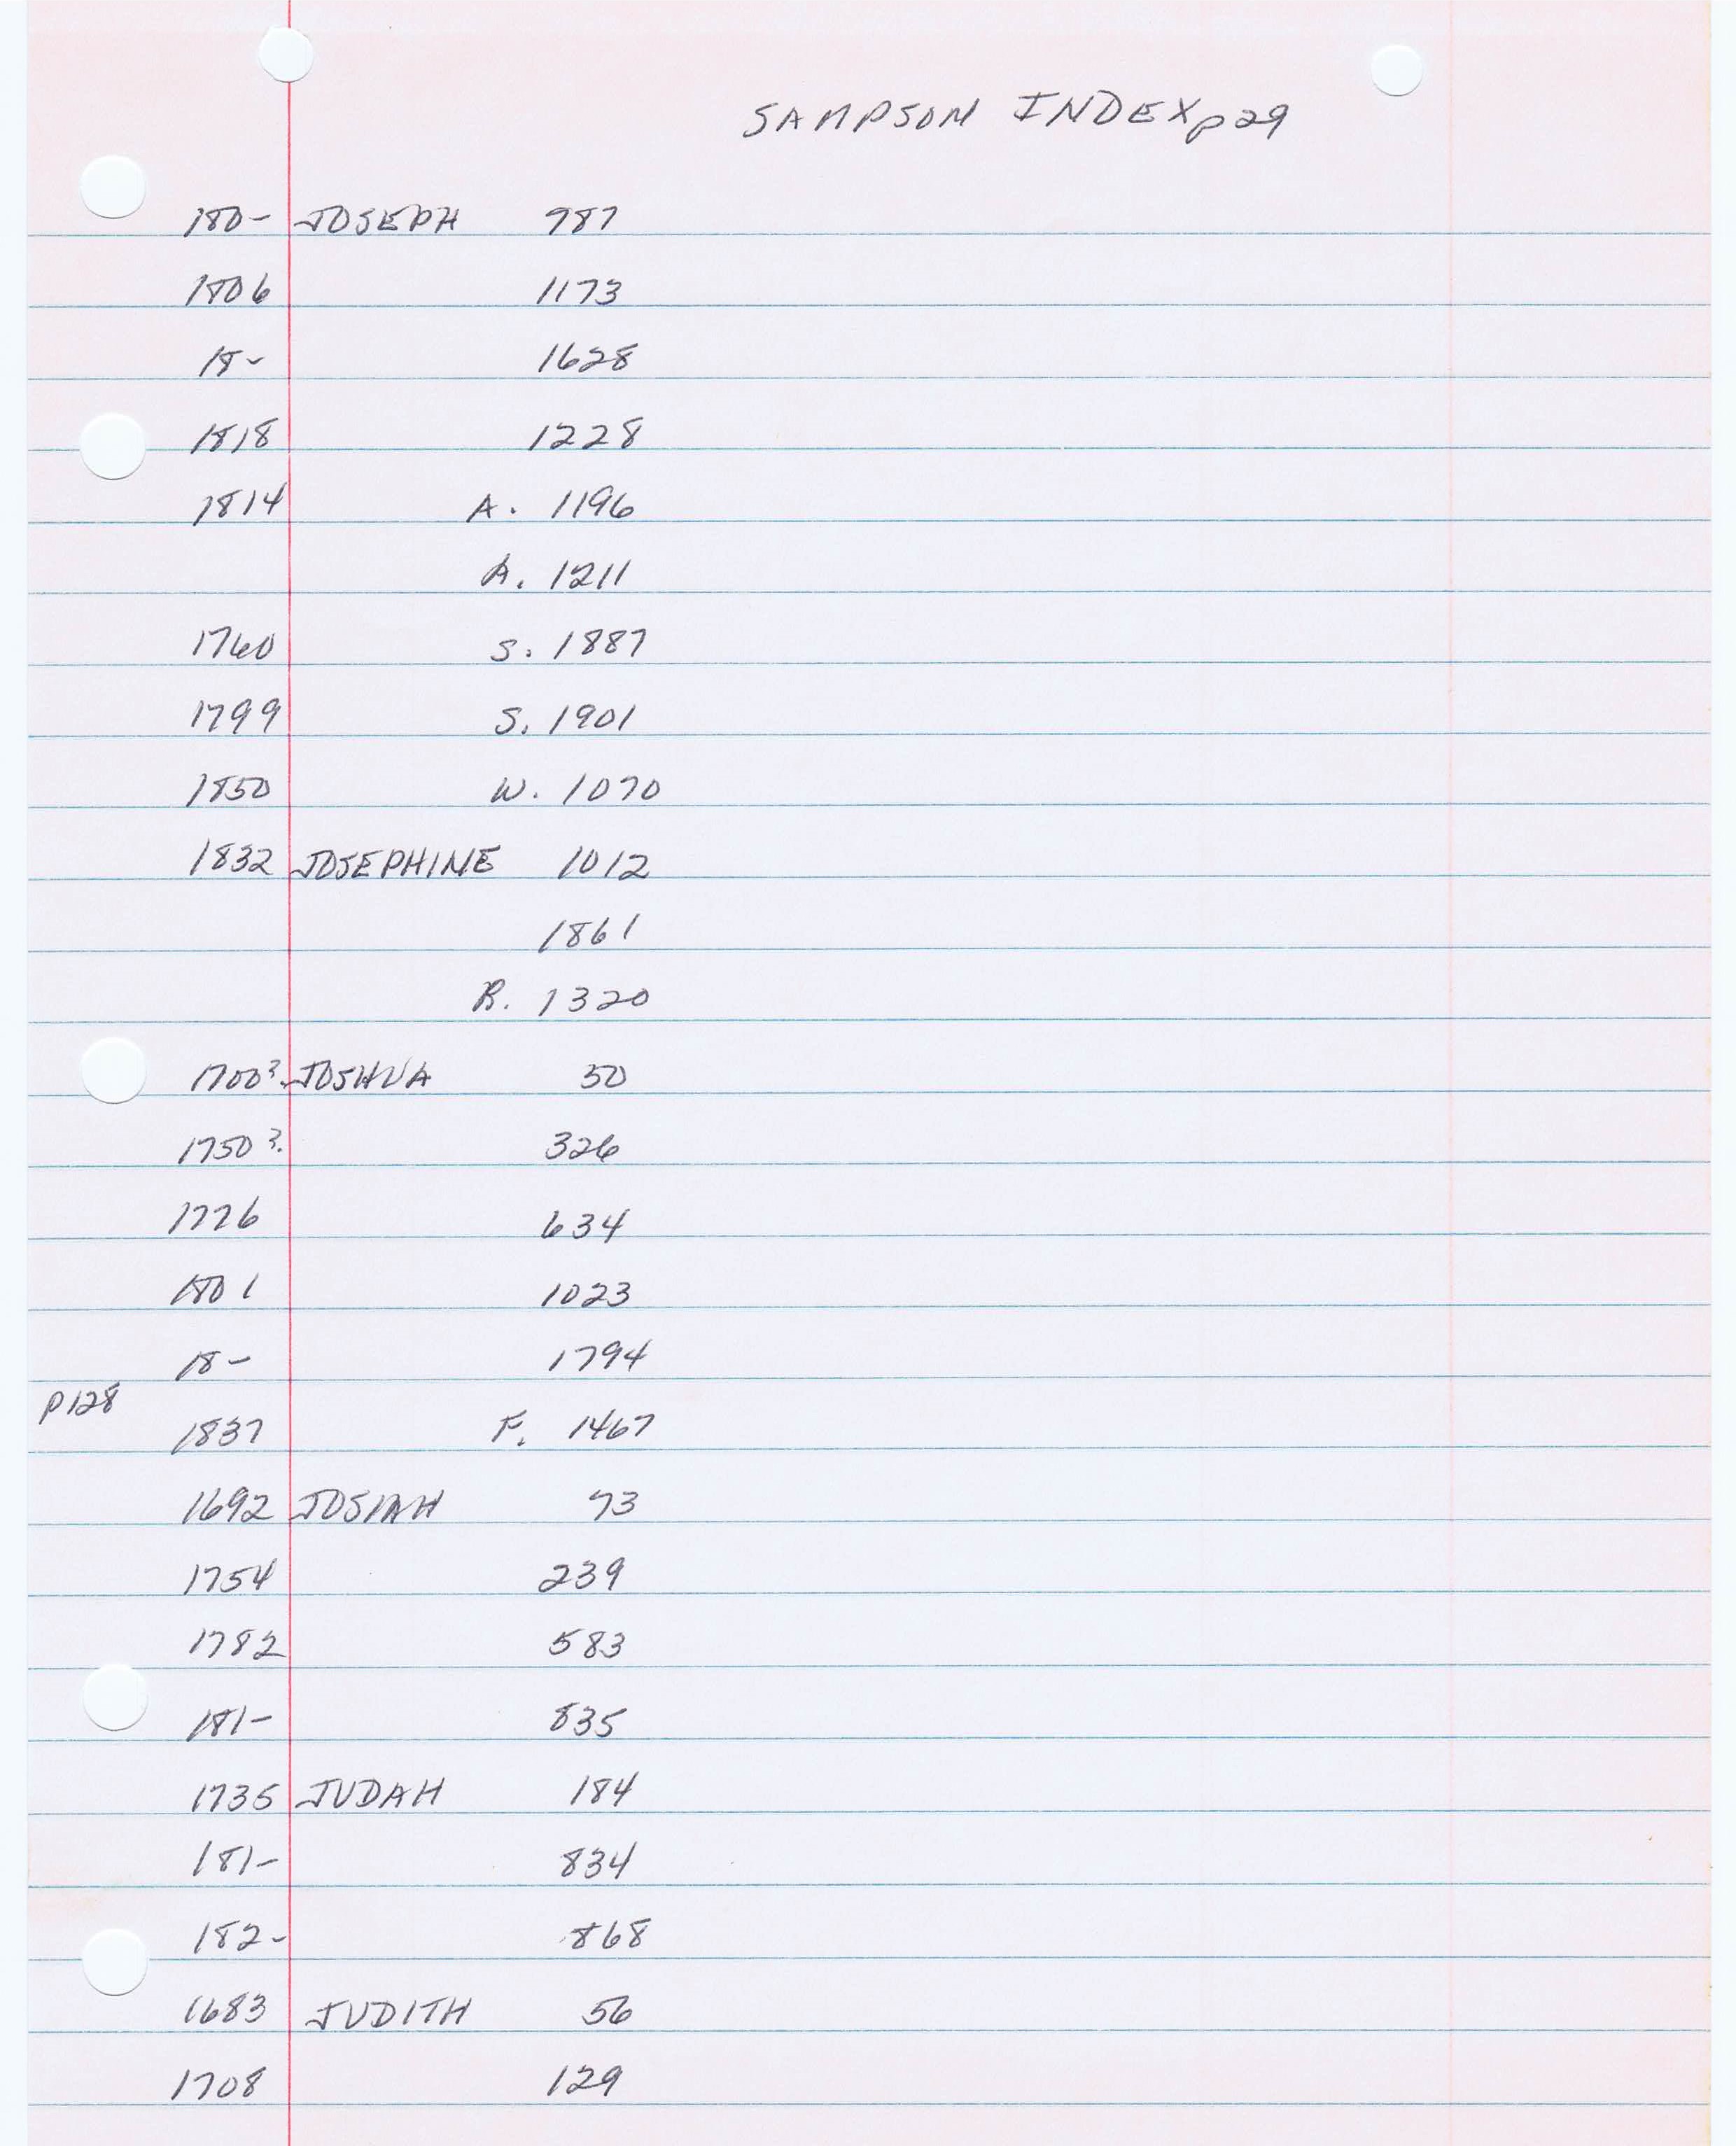 SAMPSON INDEX p29
180- JOSEPH 987
1806 1173
18- 1628
1818 1228
1814 A. 1196
A. 1211
1760 S. 1887
1799 S. 1901
1850 W. 1070
1832 JOSEPHINE 1012
1861
R. 1320
1700? JOSHUA 50
1750? 326
1776 634
1801 1023
18- 1794
p128
1837 F. 1467
1692 JOSIAH 73
1754 239
1782 583
181- 835
1735 JUDAH 184
181- 834
182- 868
1683 JUDITH 56
1708 129